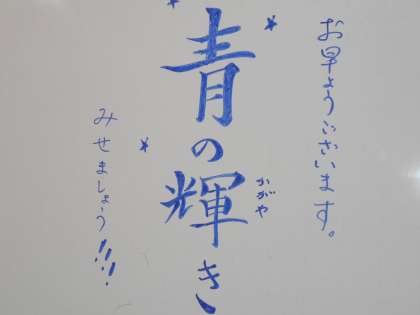 お早ようございます。
青の輝き
かがや
みせましょう!!!!